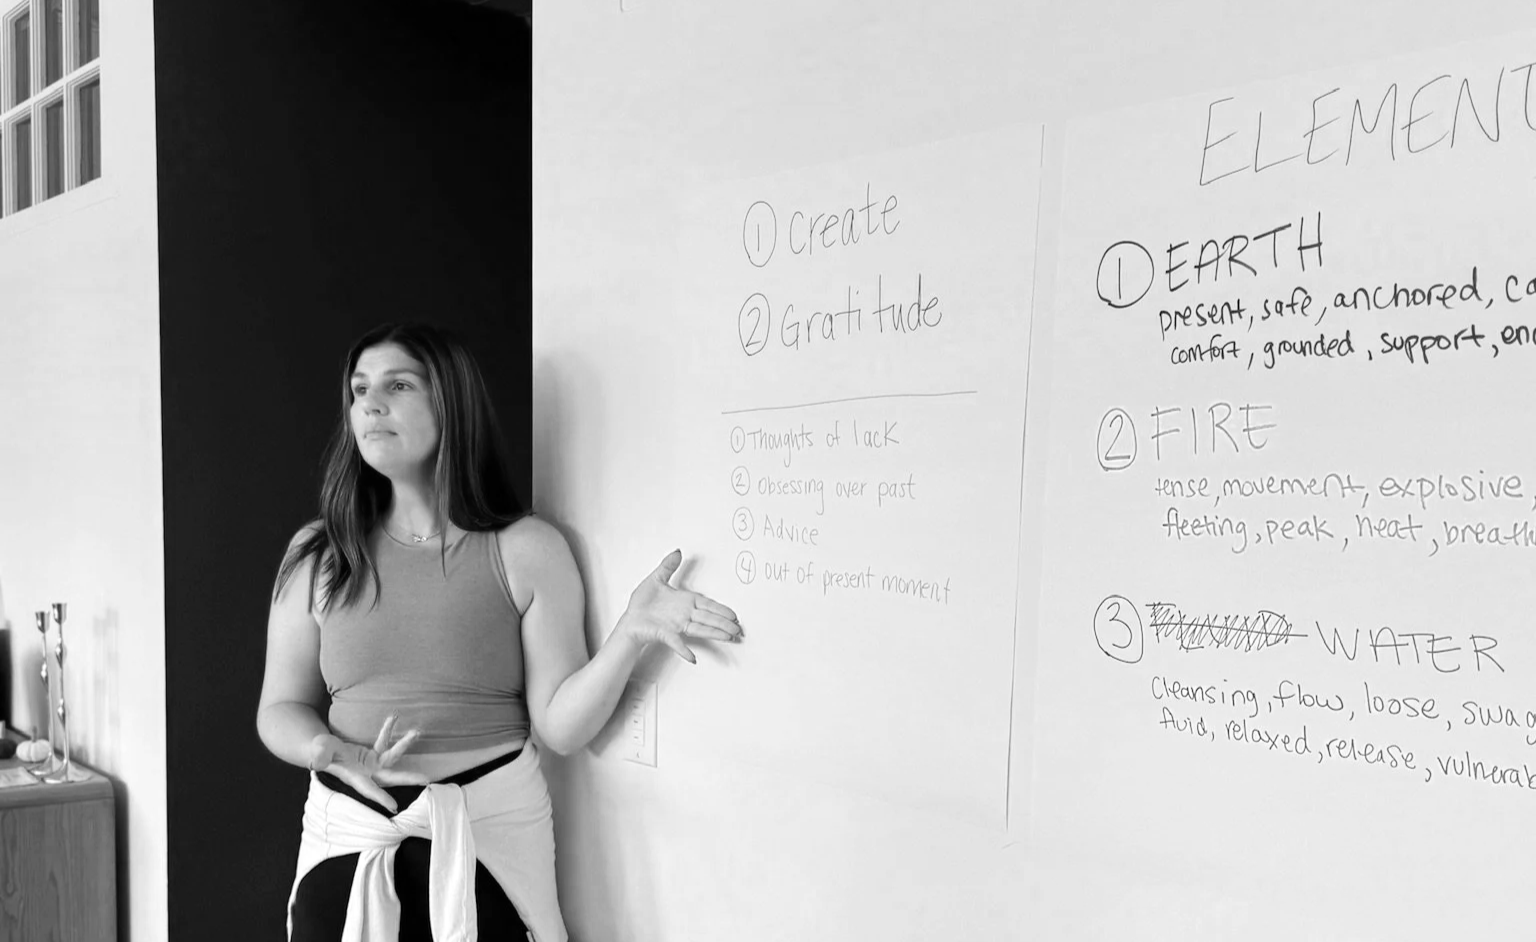 ① Create
② Gratitude
① Thoughts of lack
② Obsessing over past
③ Advice
④ out of present moment
ELEMENT
① EARTH
present, safe, anchored,
comfort, grounded, support,
② FIRE
tense, movement, explosive,
fleeting, peak, heat,
③ WATER
Cleansing, flow, loose,
fluid, relaxed, release,